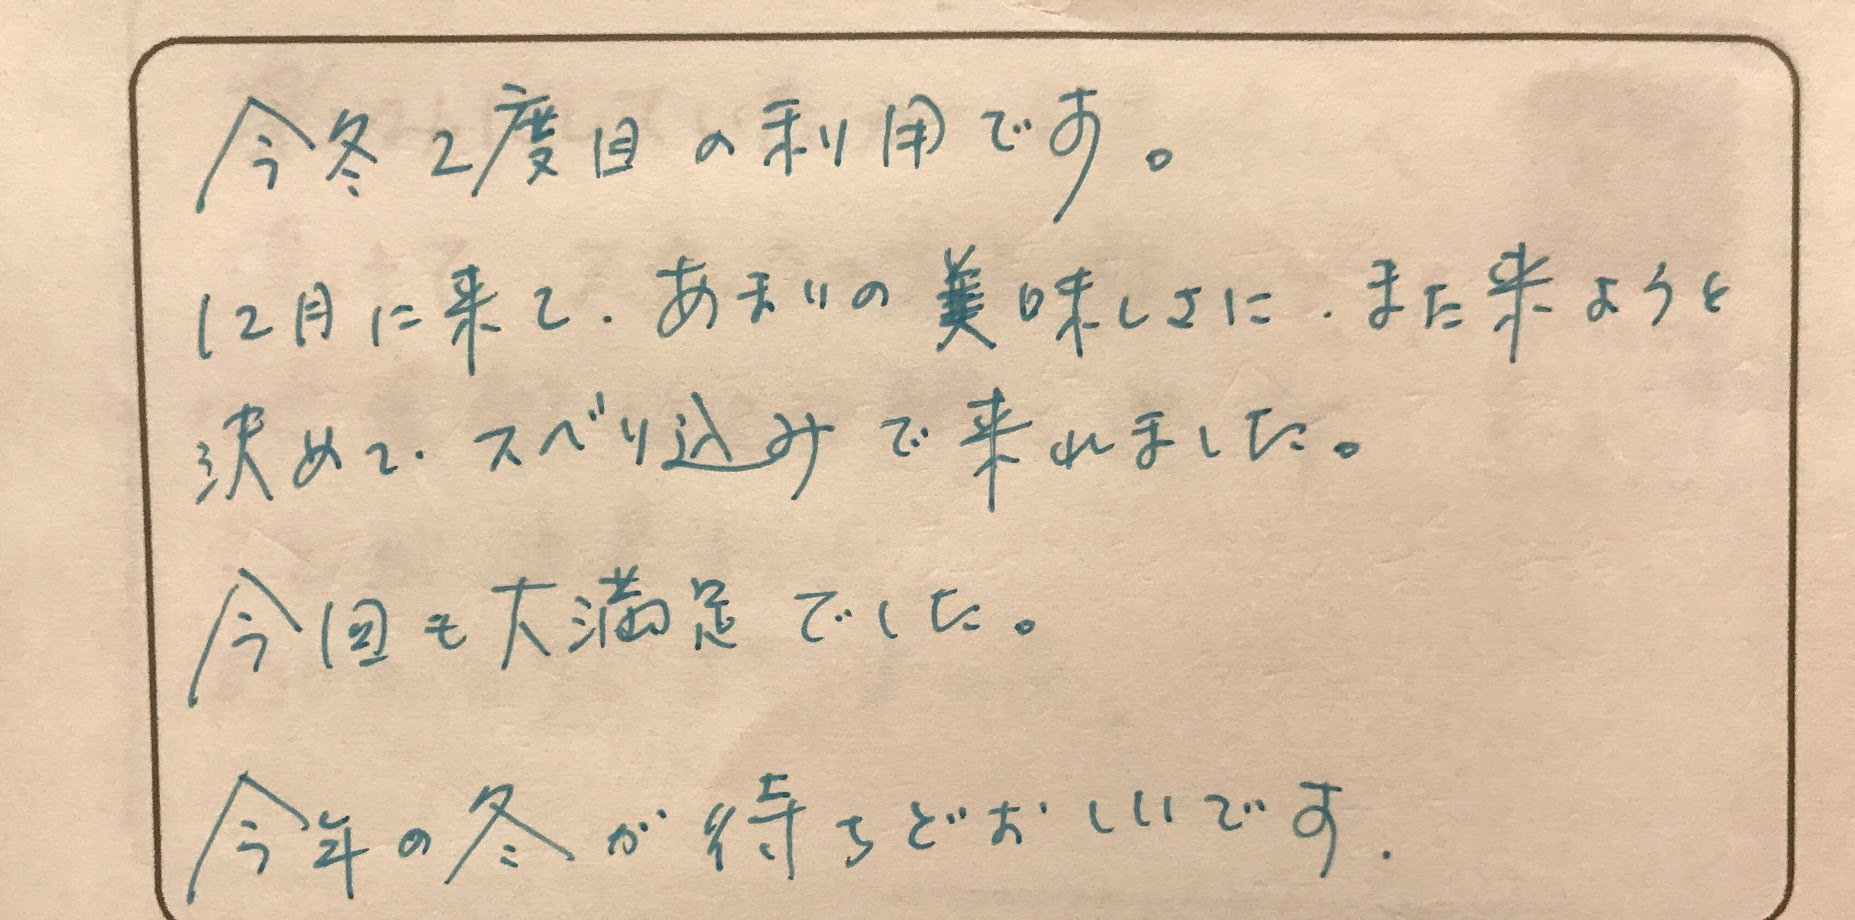 今冬2度目の利用です。
12月に来て、あまりの美味しさに、また来ようと
決めて、スベリ込みで来れました。
今回も大満足でした。
今年の冬が待ちどおしいです.